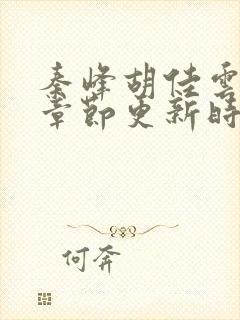 秦峰胡佳雲
章節更新時
何奔